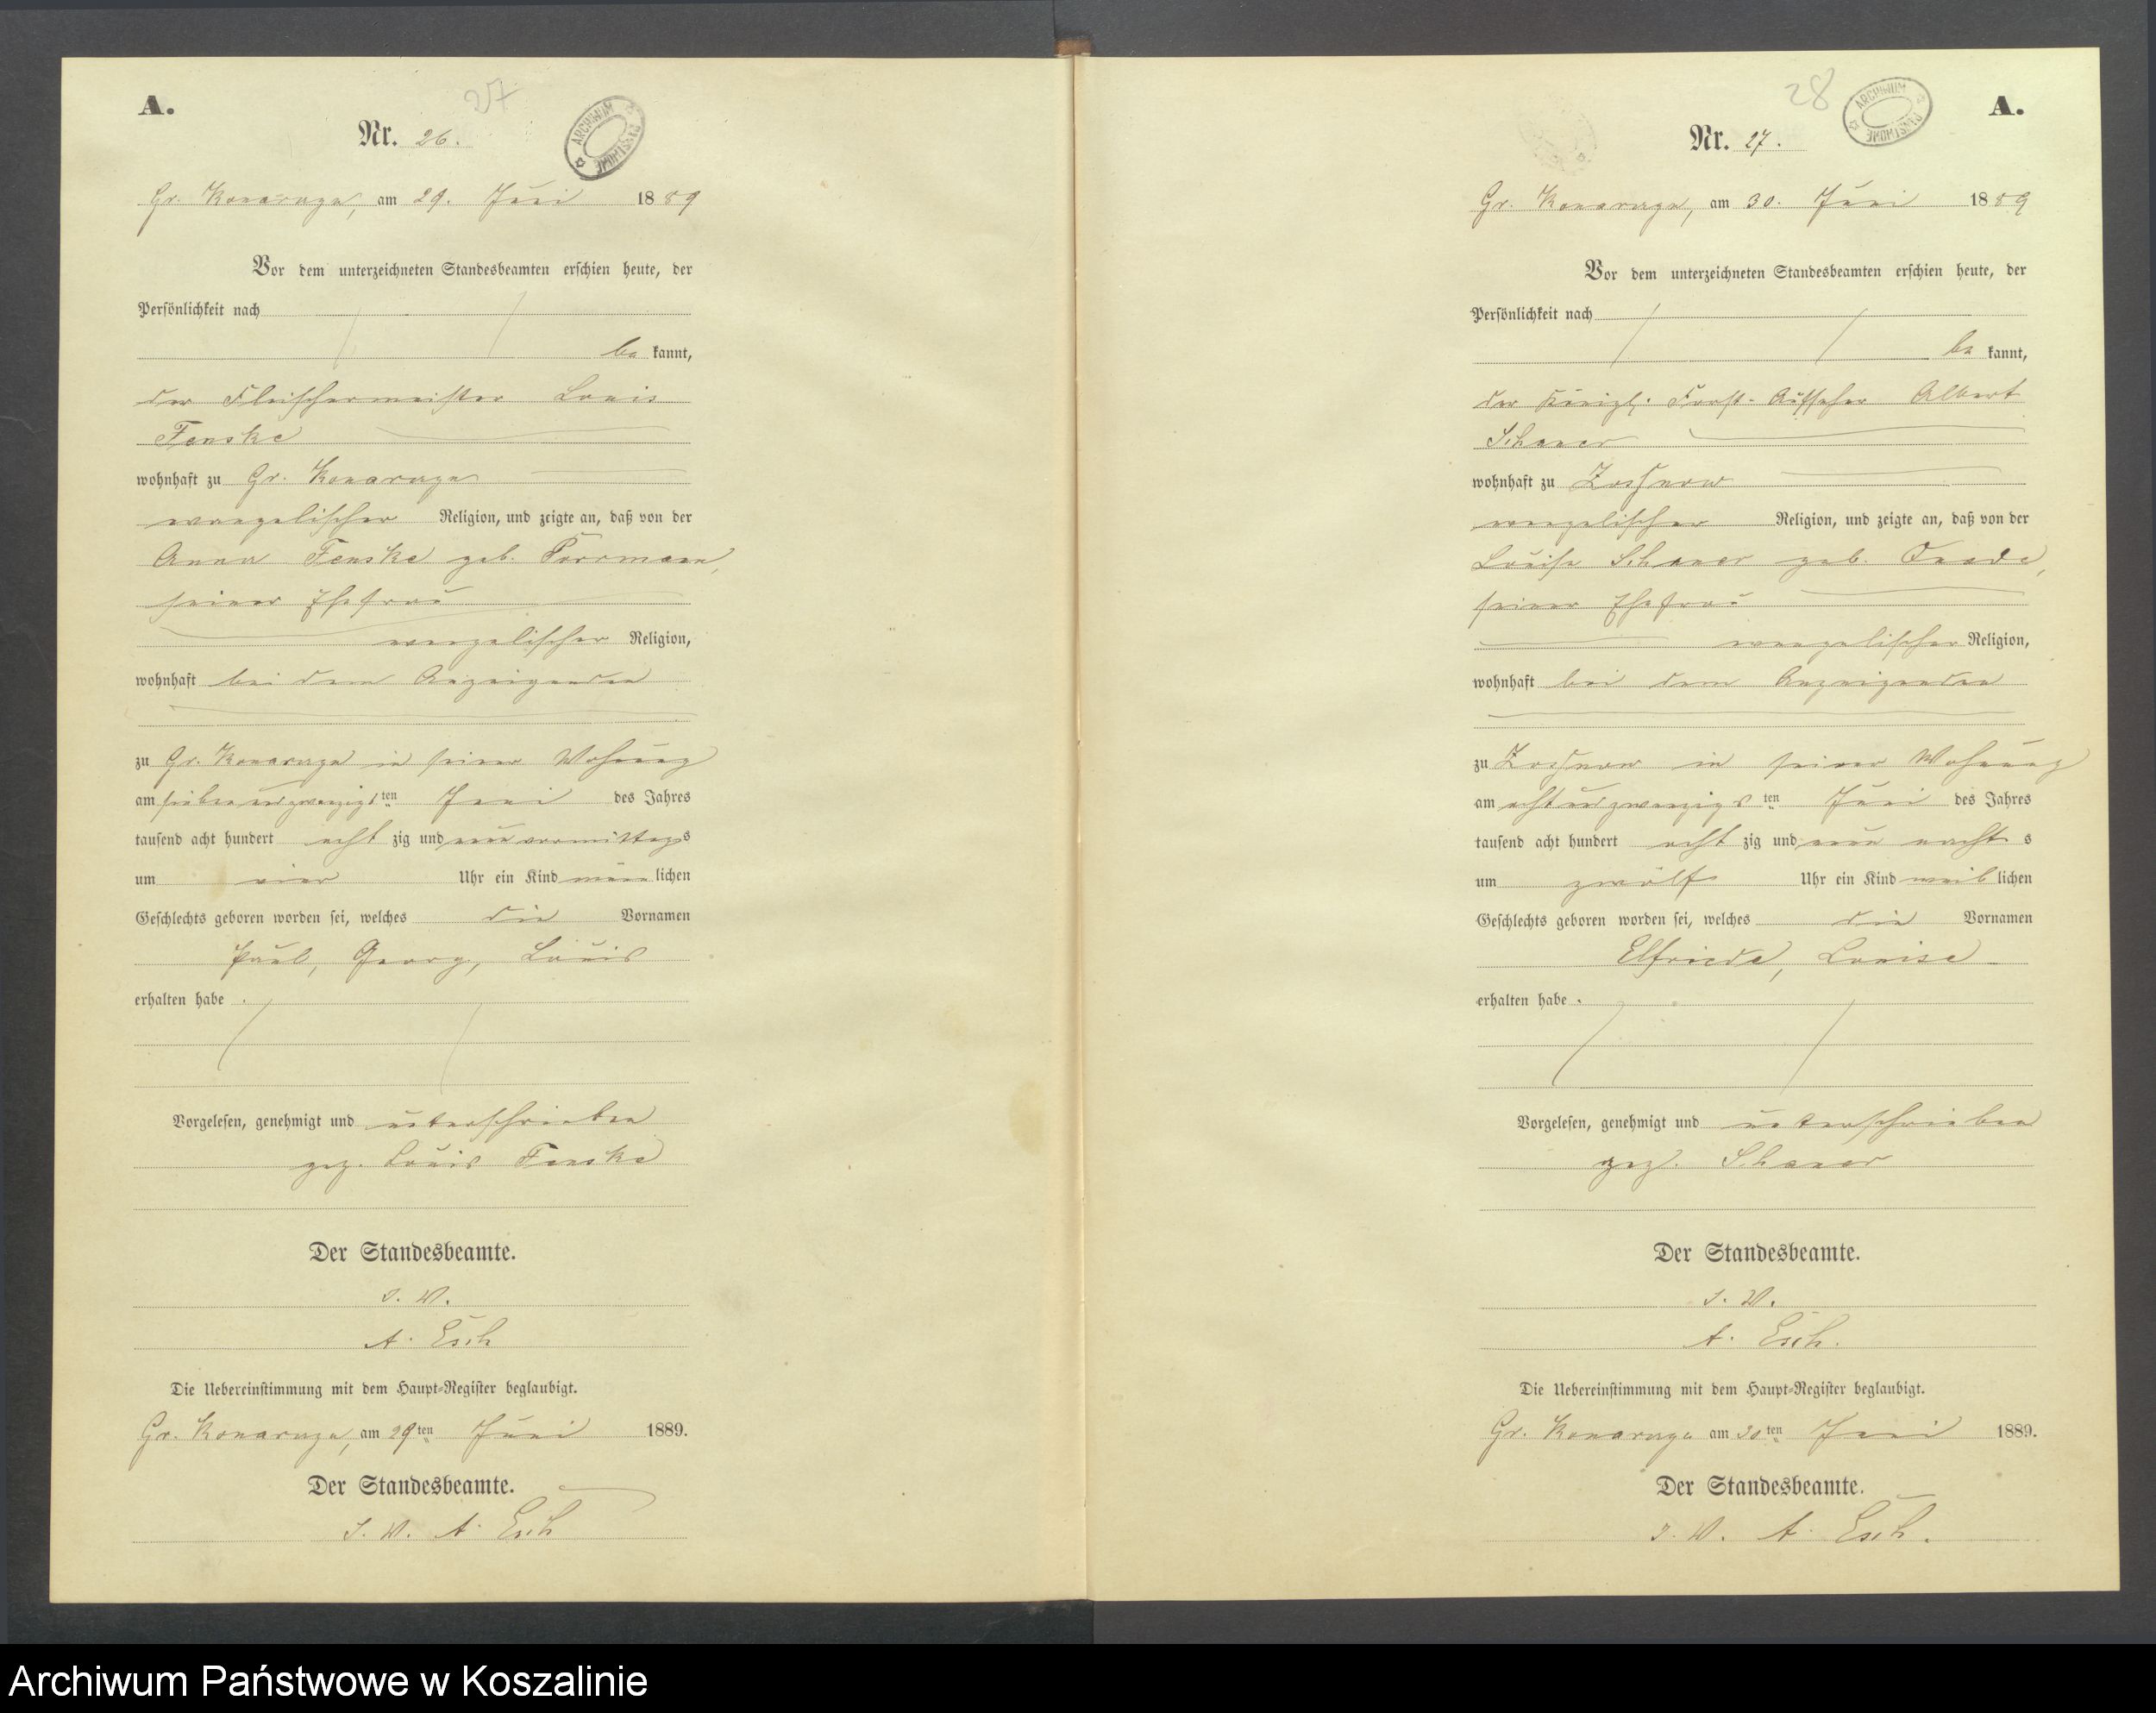 A.
27
Nr. 26.
ARCHIWUM PAŃSTWOWE
Gr. Konarzyn, am 29. Juni 1889
Vor dem unterzeichneten Standesbeamten erschien heute, der
Persönlichkeit nach
be kannt,
der Fleischermeister Louis
Fenske
wohnhaft zu Gr. Konarzyn
evangelischer Religion, und zeigte an, daß von der
Anna Fenske geb. Porrmann,
seiner Ehefrau
evangelischer Religion,
wohnhaft bei dem Anzeigenden
zu Gr. Konarzyn in seiner Wohnung
am siebenundzwanzigsten Juni des Jahres
tausend acht hundert acht zig und neun vormittags
um vier Uhr ein Kind männlichen
Geschlechts geboren worden sei, welches die Vornamen
Paul, Georg, Louis
erhalten habe.
Vorgelesen, genehmigt und unterschrieben
gez. Louis Fenske
Der Standesbeamte.
I. V.
A. Esch
Die Uebereinstimmung mit dem Haupt-Register beglaubigt.
Gr. Konarzyn, am 29ten Juni 1889.
Der Standesbeamte.
I. V. A. Esch
28
A.
Nr. 27.
ARCHIWUM PAŃSTWOWE
Gr. Konarzyn, am 30. Juni 1889
Vor dem unterzeichneten Standesbeamten erschien heute, der
Persönlichkeit nach
be kannt,
der Königl. Forst-Aufseher Albert
wohnhaft zu
evangelischer Religion, und zeigte an, daß von der
Louise geb.
seiner Ehefrau
evangelischer Religion,
wohnhaft bei dem Anzeigenden
zu in seiner Wohnung
am achtundzwanzigsten Juni des Jahres
tausend acht hundert acht zig und neun nachts
um zwölf Uhr ein Kind weiblichen
Geschlechts geboren worden sei, welches die Vornamen
Elfriede, Louise
erhalten habe.
Vorgelesen, genehmigt und unterschrieben
gez.
Der Standesbeamte.
I. V.
A. Esch.
Die Uebereinstimmung mit dem Haupt-Register beglaubigt.
Gr. Konarzyn am 30ten Juni 1889.
Der Standesbeamte.
I. V. A. Esch.
Archiwum Państwowe w Koszalinie